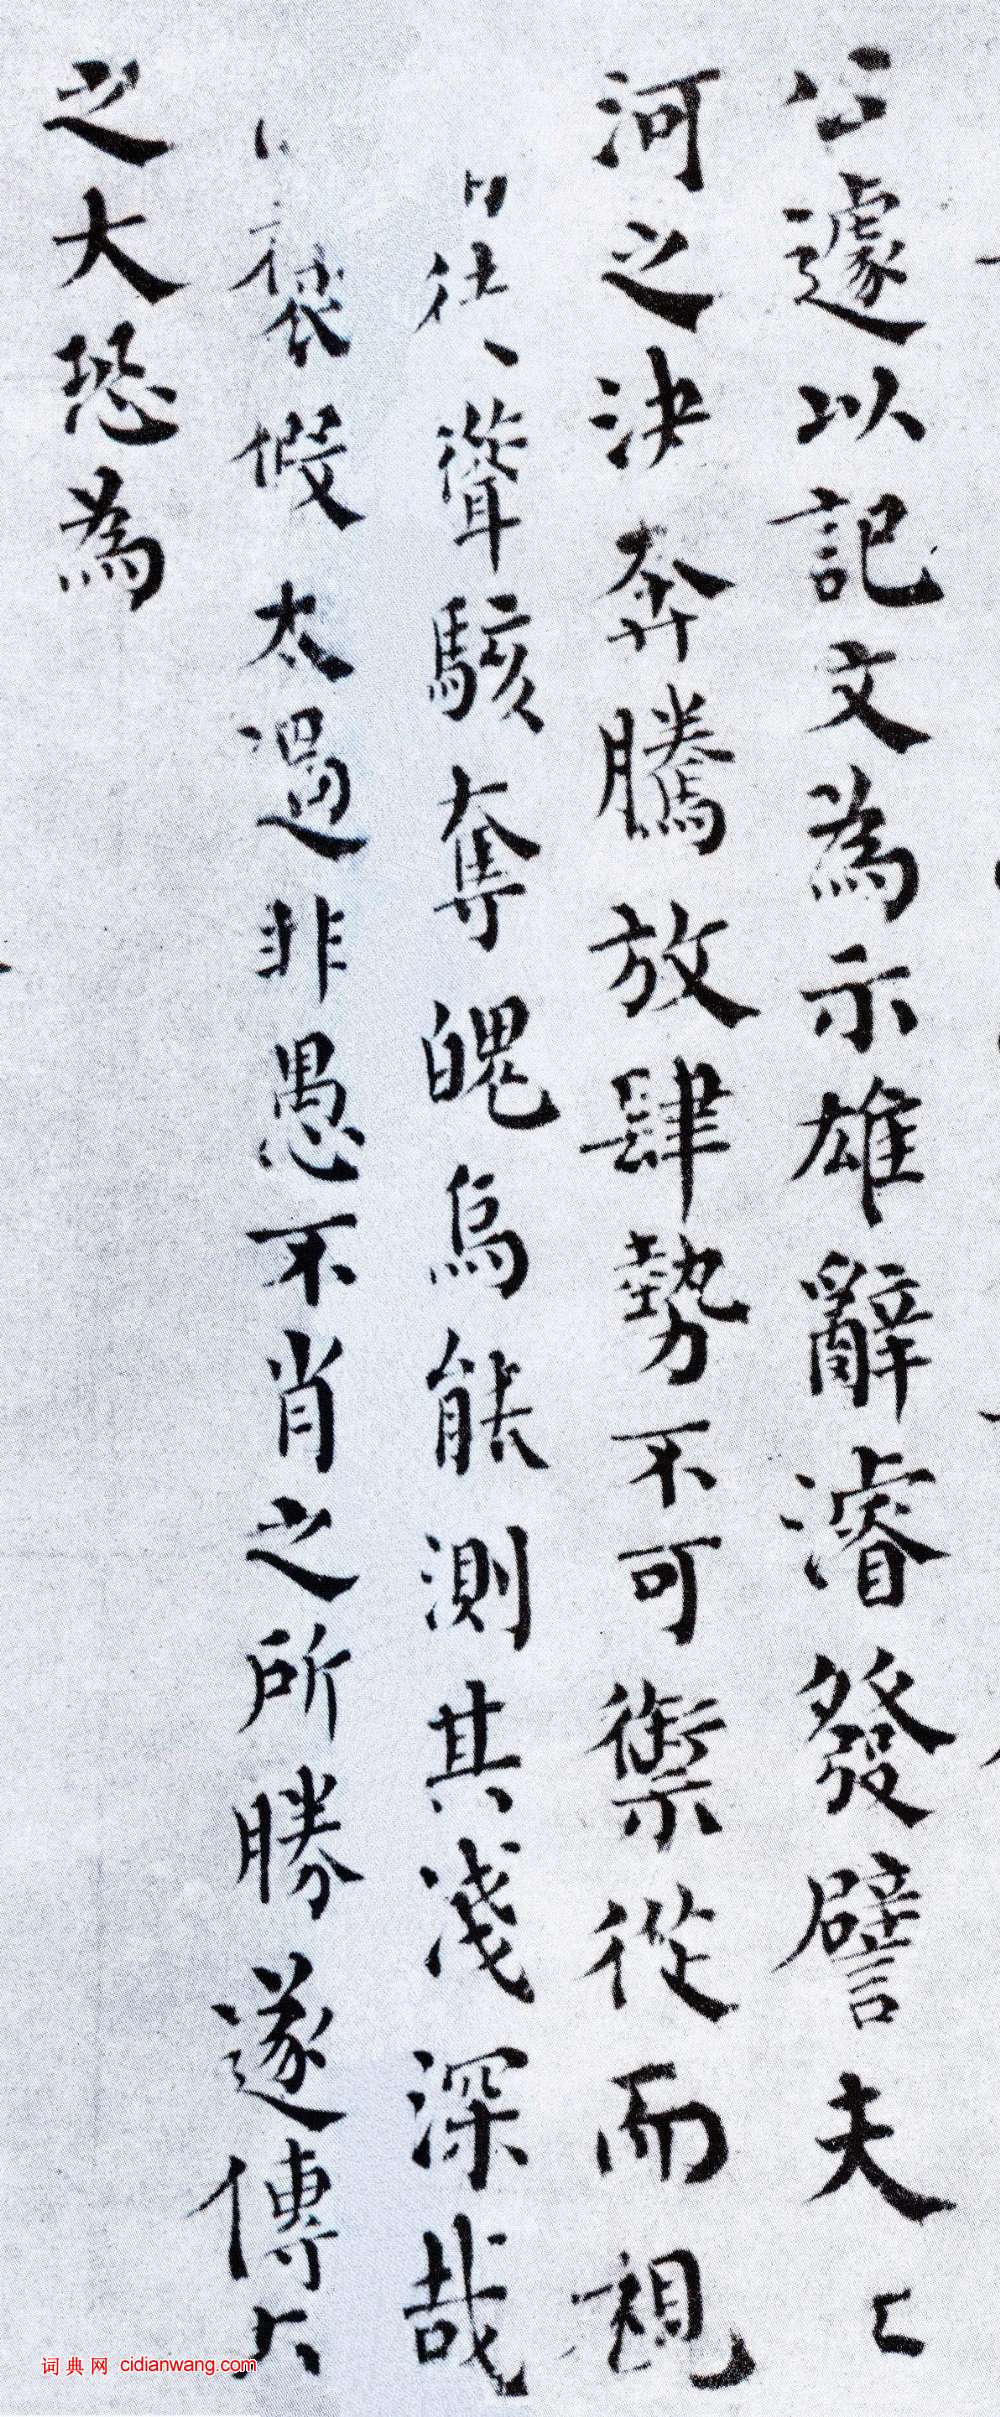 公遽以記文為示雄辭濬發譬夫
河之決奔騰放肆勢不可禦從而視
徒聳駭奪魄烏能測其淺深哉
褒假太過非愚不肖之所勝遂傳
之大恐為
词典网 cidianwang.com